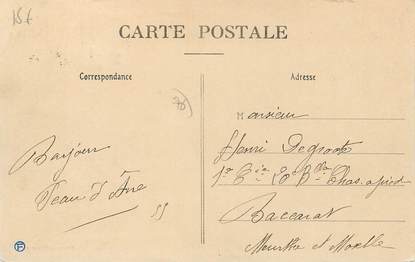 15f
CARTE POSTALE
Correspondance
Adresse
78
Monsieur
Henri Degroote
1re Cie 20e Bon Chas. a pied
Baccarat
Meurthe et Moselle
Bonjour
Jean